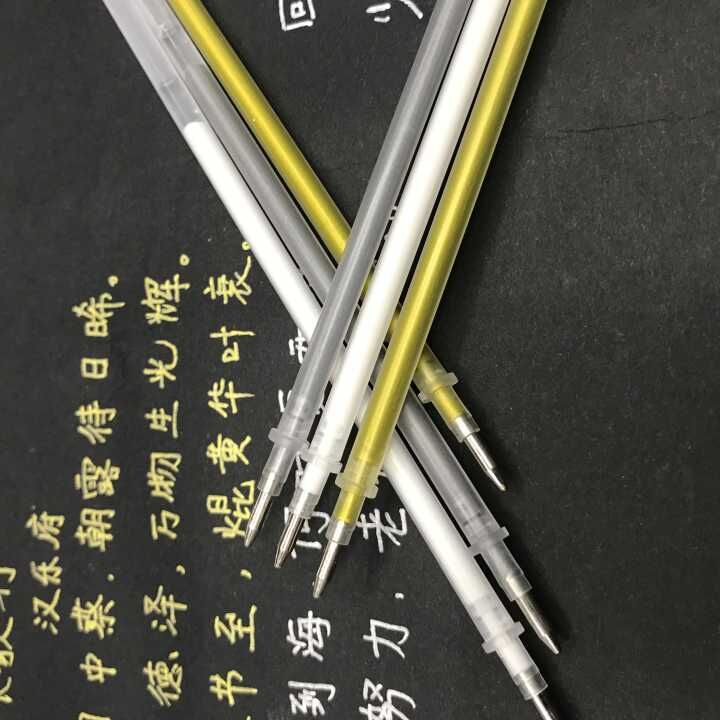 行
汉乐府
中葵.朝露待日晞。
德泽,万物生光辉。
书至,焜黄华叶衰。
到海 回
努力,老